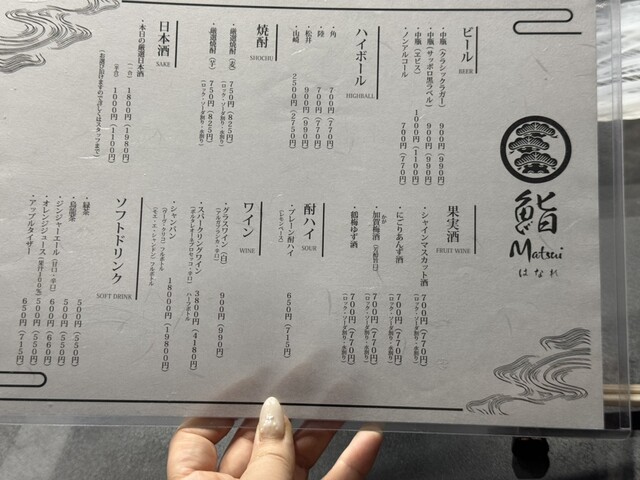 鮨
Matsui
はなれ
ビール
BEER
・中瓶(クラシックラガー) 900円(990円)
・中瓶(サッポロ黒ラベル) 900円(990円)
・中瓶(ヱビス) 1000円(1100円)
・ノンアルコール 700円(770円)
ハイボール
HIGHBALL
・角 700円(770円)
・陸 700円(770円)
・松井 900円(990円)
・山崎 2500円(2750円)
焼酎
SHOCHU
・厳選焼酎(麦) 750円(825円)
(ロック・ソーダ割り・水割り)
・厳選焼酎(芋) 750円(825円)
(ロック・ソーダ割り・水割り)
日本酒
SAKE
・本日の厳選日本酒
(一合) 1800円(1980円)
(半合) 1000円(1100円)
果実酒
FRUIT WINE
・シャインマスカット酒 700円(770円)
(ロック・ソーダ割り・水割り)
・にごりあんず酒 700円(770円)
(ロック・ソーダ割り・水割り)
・加賀梅酒 700円(770円)
(ロック・ソーダ割り・水割り)
・鶴梅ゆず酒 700円(770円)
(ロック・ソーダ割り・水割り)
酎ハイ
SOUR
・プレーン酎ハイ 650円(715円)
(レモンベース)
ワイン
WINE
・グラスワイン(白) 900円(990円)
・スパークリングワイン 3800円(4180円)
ハーフボトル
・シャンパン 18000円(19800円)
フルボトル
(モエ・エ・シャンドン)フルボトル
ソフトドリンク
SOFT DRINK
・緑茶 500円(550円)
・烏龍茶 500円(550円)
・ジンジャーエール(甘口・辛口) 600円(660円)
・オレンジジュース(果汁100%) 500円(550円)
・アップルタイザー 650円(715円)